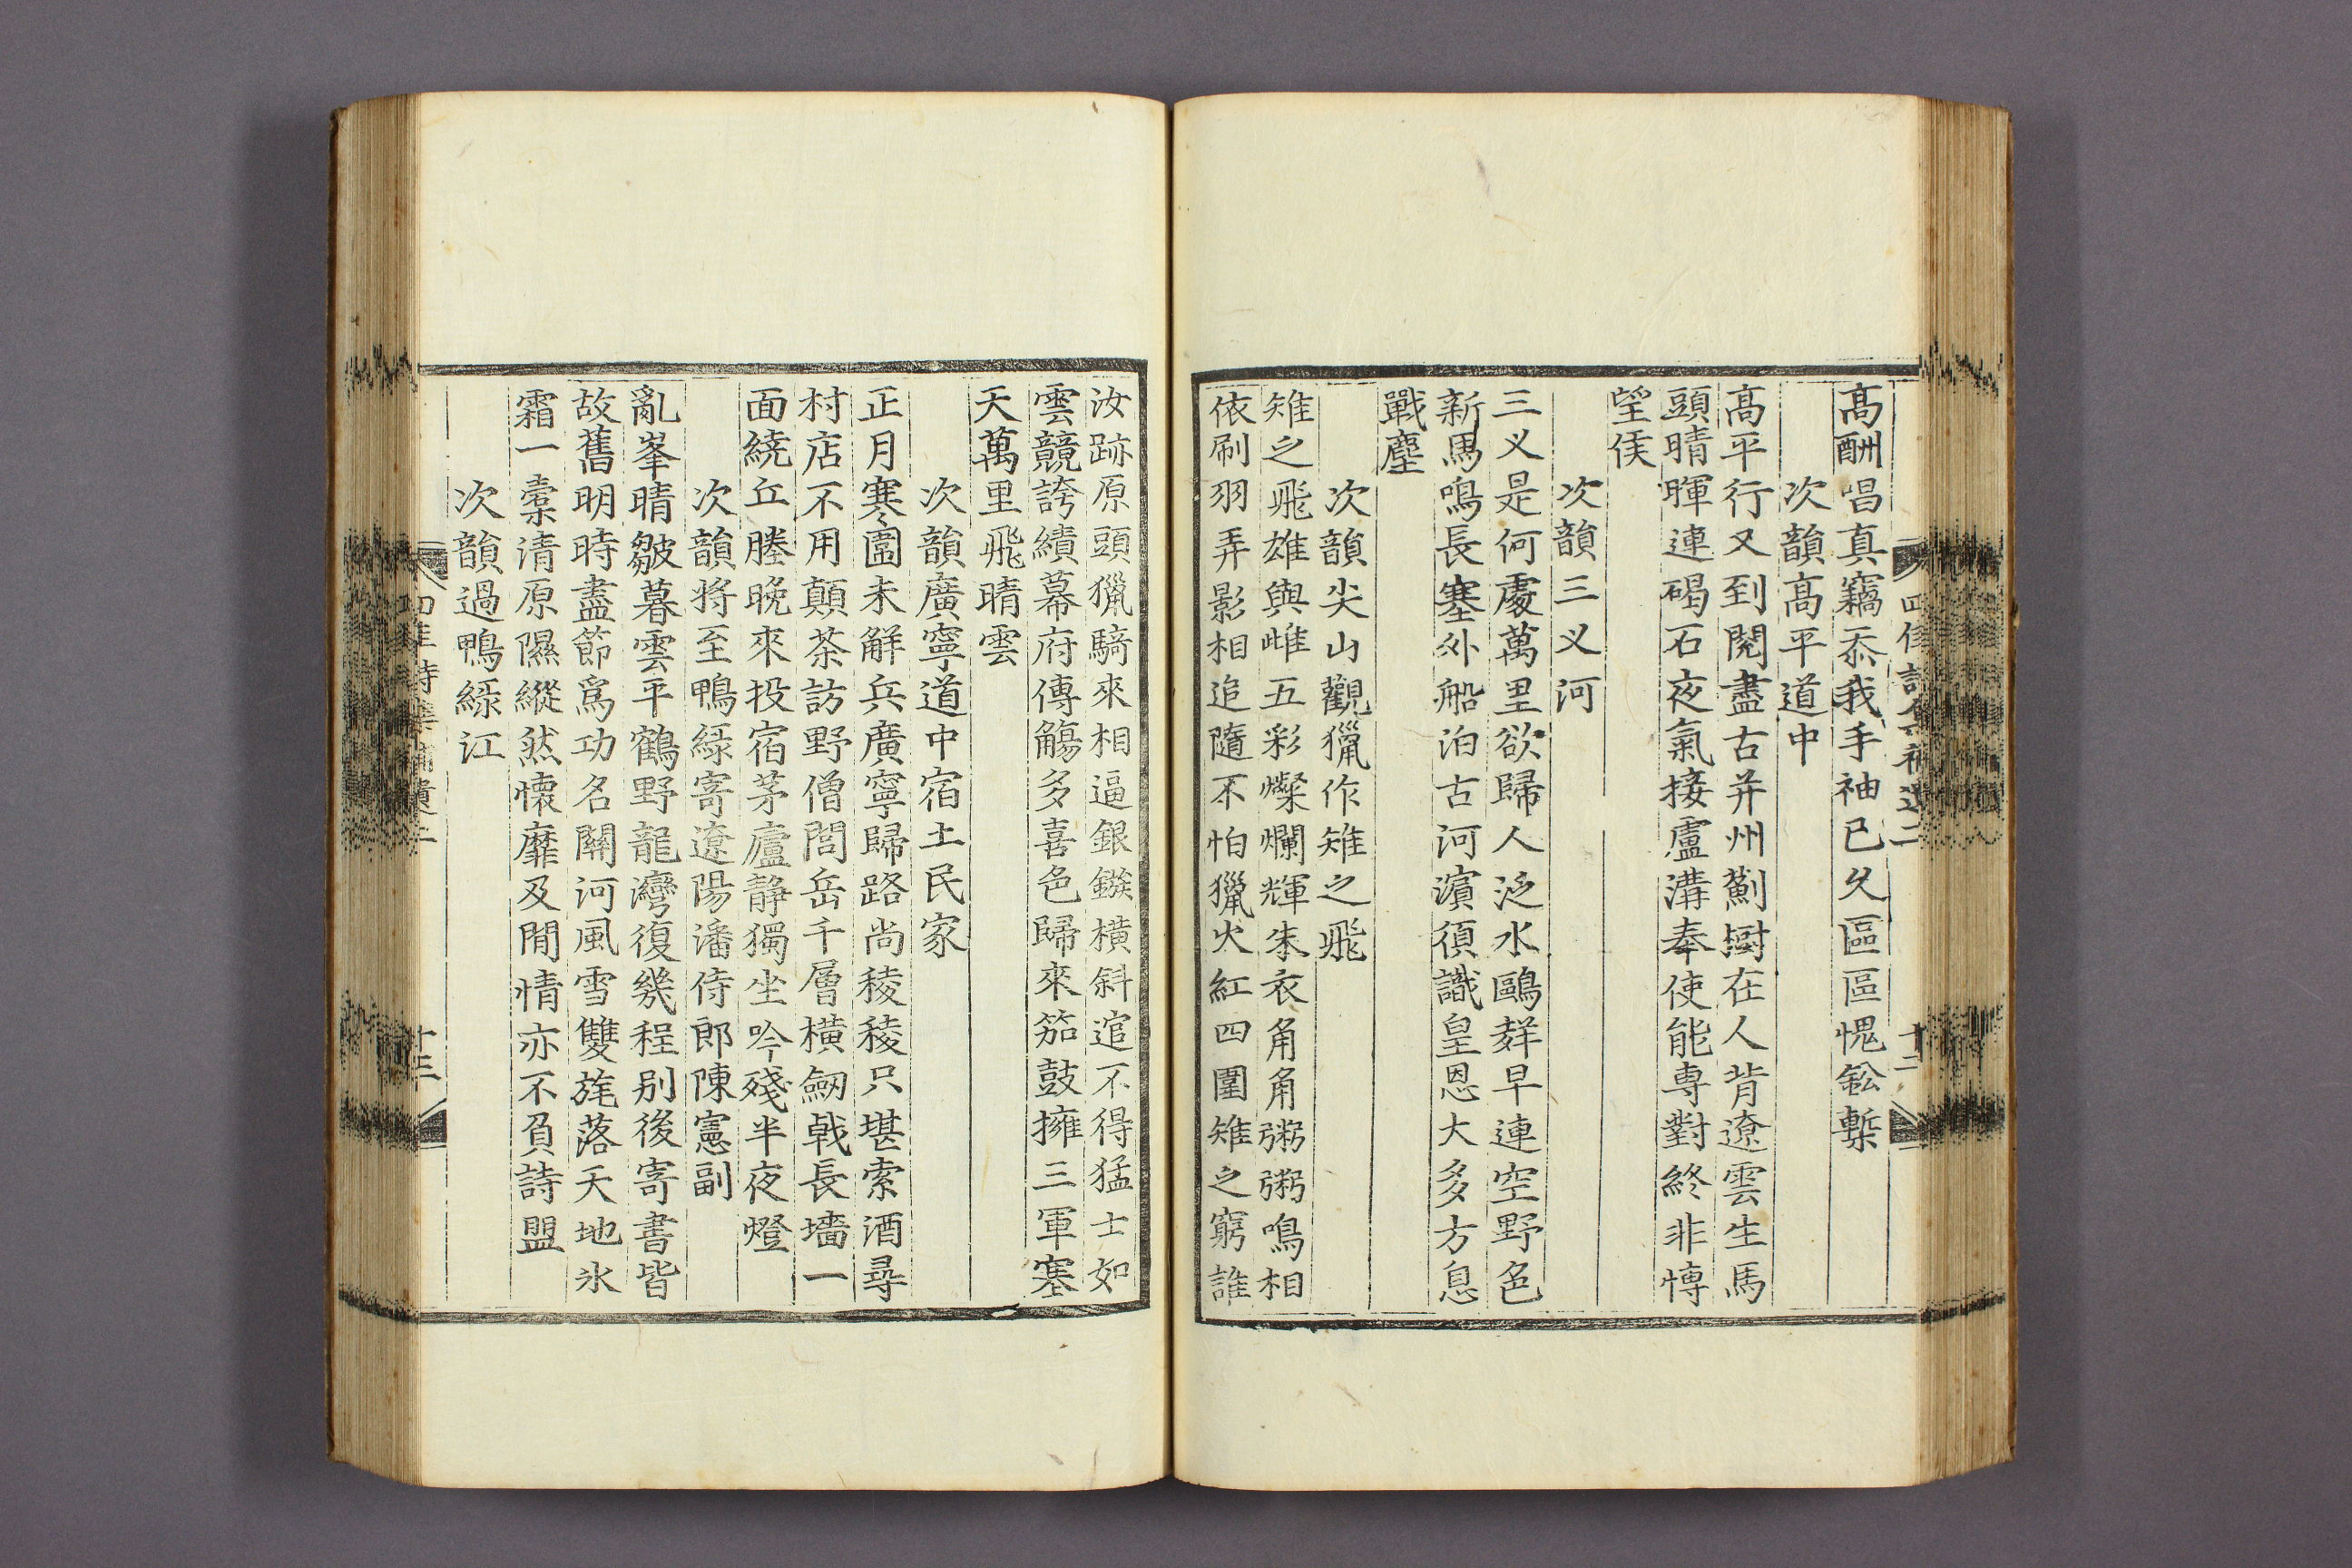 四佳詩集補遺二
十二
高酬唱真竊忝我手袖已久區區愧鈆槧
次韻高平道中
高平行又到閱盡古并州薊樹在人背遼雲生馬
頭晴暉連碣石夜氣接盧溝奉使能專對終非博
望侯
次韻三义河
三义是何處萬里欲歸人泛水鷗群早連空野色
新馬鳴長塞外船泊古河濱須識皇恩大多方息
戰塵
次韻尖山觀獵作雉之飛
雉之飛雄與雌五彩燦爛輝朱衣角角粥粥鳴相
依刷羽弄影相追隨不怕獵火紅四圍雉之窮誰
汝跡原頭獵騎來相逼銀鏃橫斜逭不得猛士如
雲競誇績幕府傳觴多喜色歸來笳鼓擁三軍塞
天萬里飛晴雲
次韻廣寧道中宿土民家
正月寒圍未解兵廣寧歸路尚稜稜只堪索酒尋
村店不用顛茶訪野僧閭岳千層橫劒戟長墻一
面繞丘塍晚來投宿茅廬靜獨坐吟殘半夜燈
次韻將至鴨綠寄遼陽潘侍郎陳憲副
亂峯晴皺暮雲平鶴野龍灣復幾程別後寄書皆
故舊明時盡節爲功名關河風雪雙旄落天地氷
霜一槖清原隰縱然懷靡及閒情亦不負詩盟
次韻過鴨綠江
四佳詩集補遺二
十三